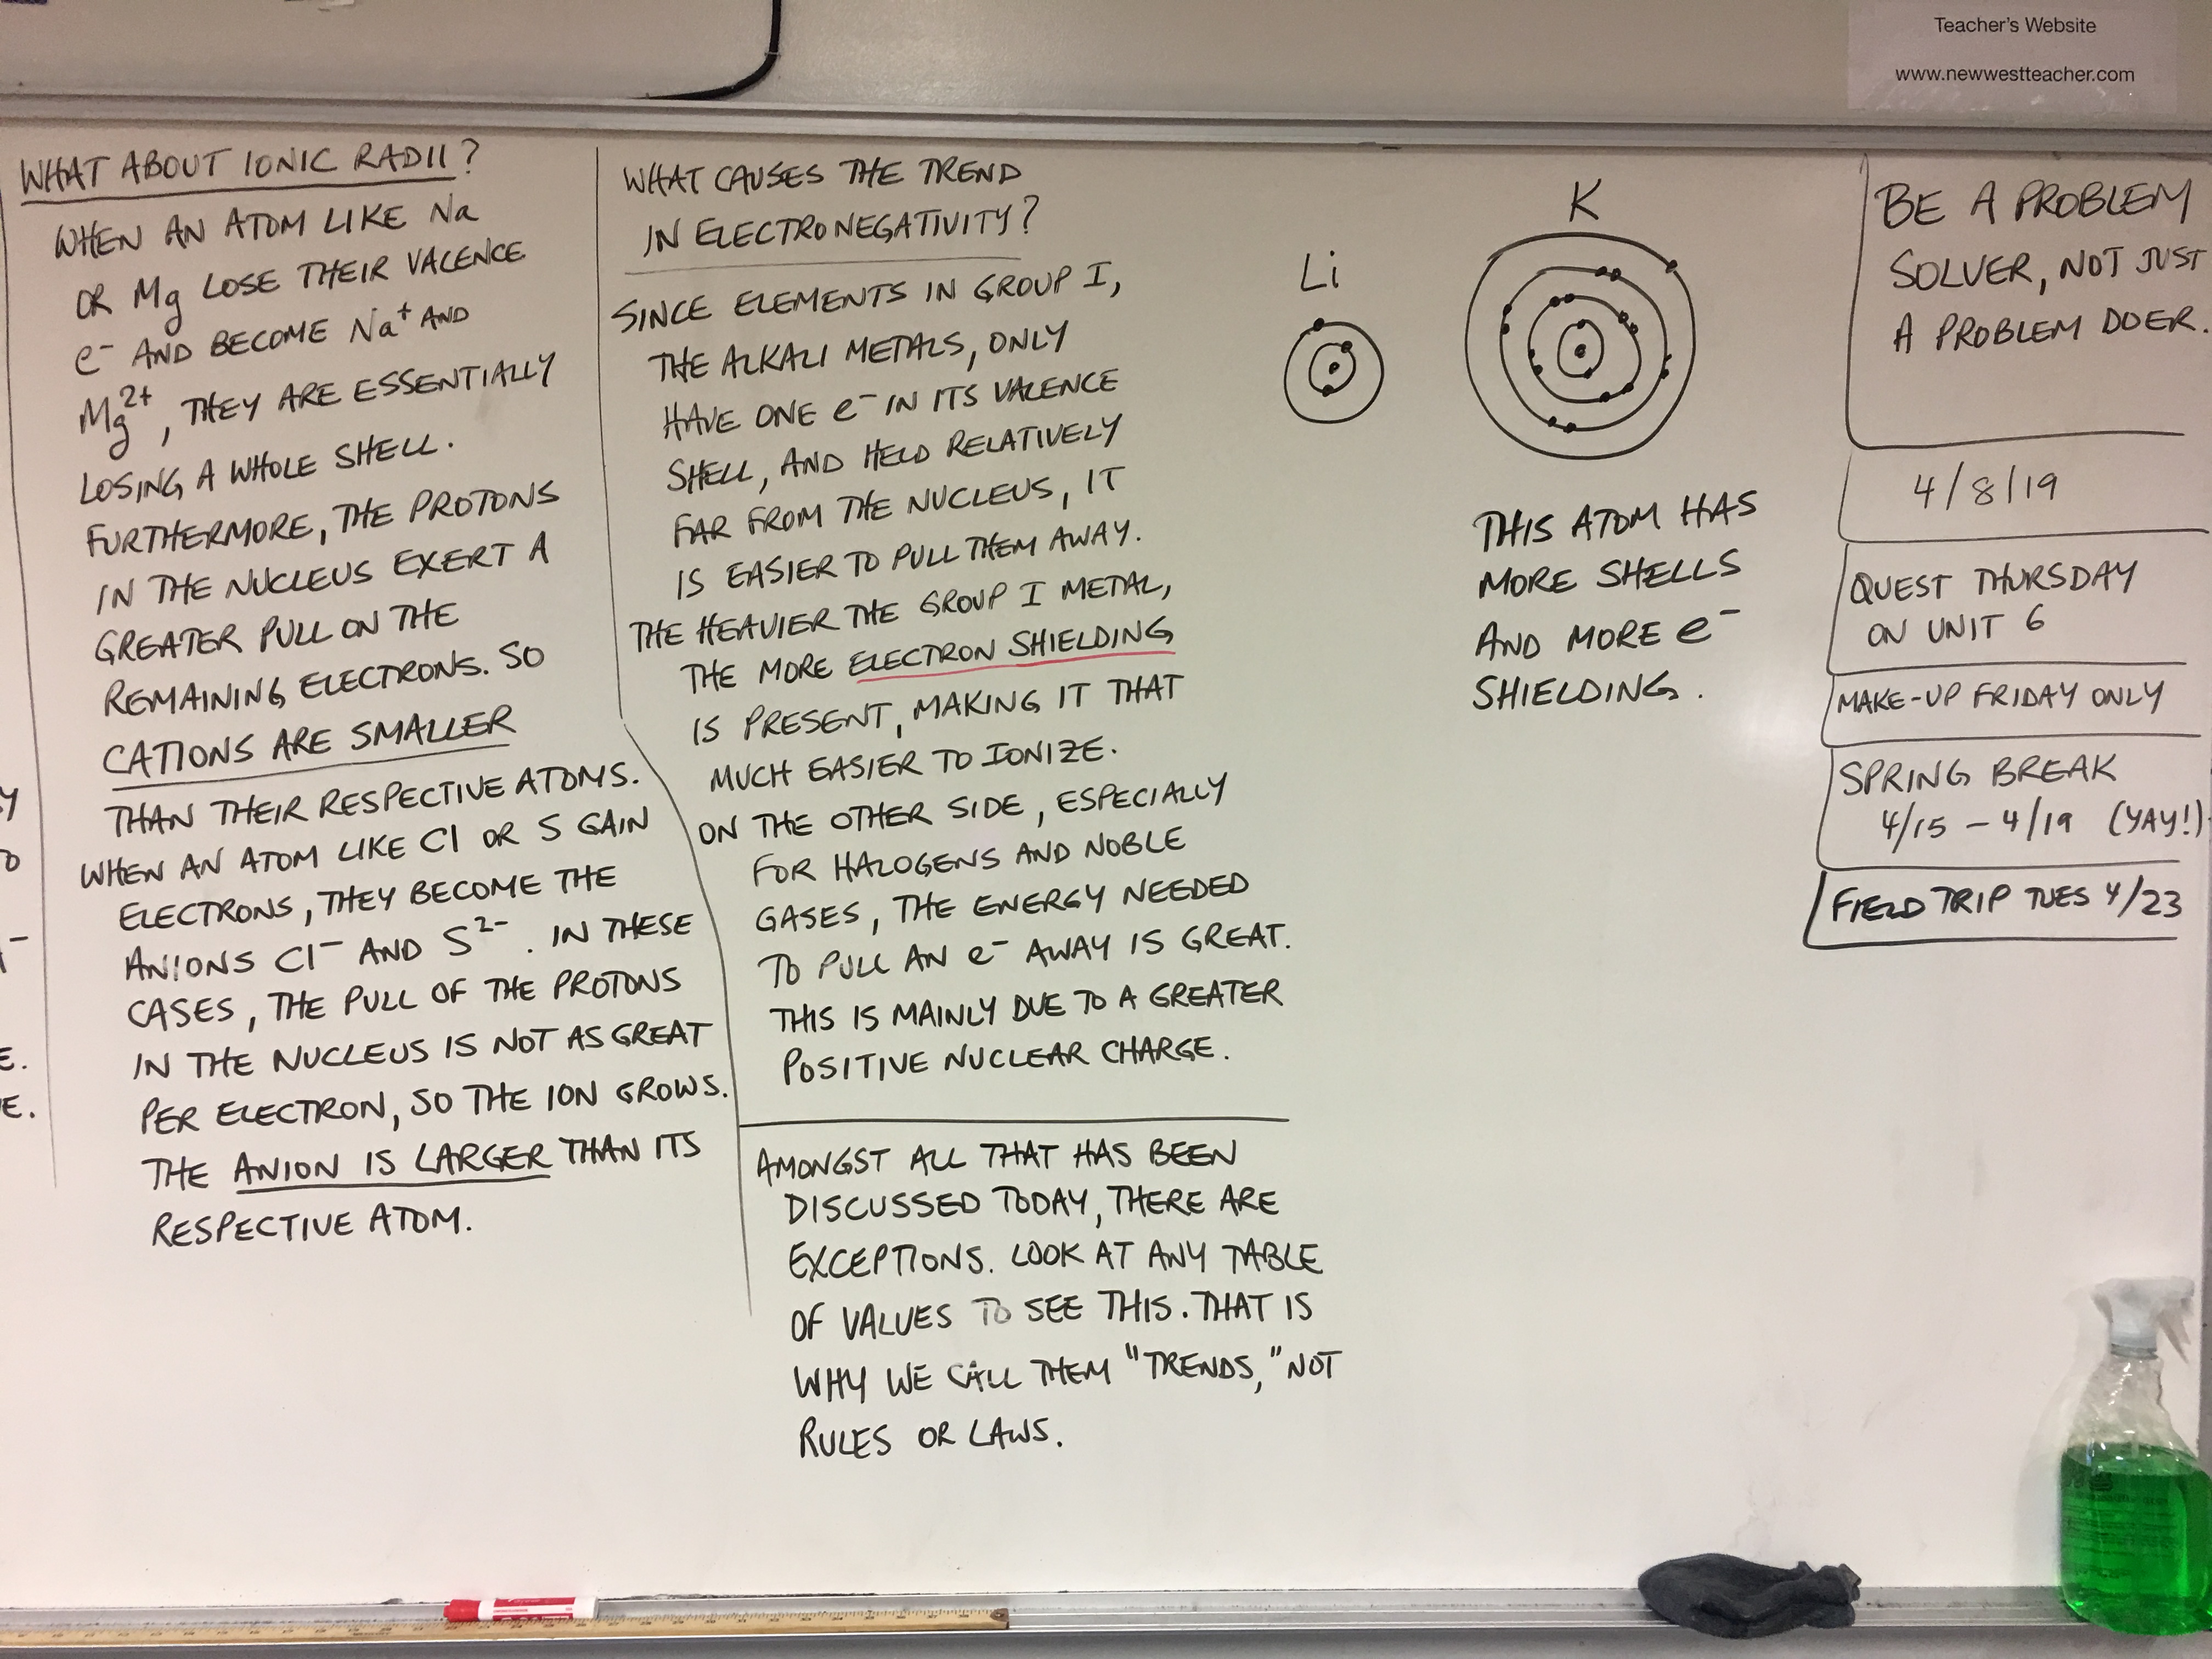 Teacher's Website
www.newwestteacher.com
WHAT ABOUT IONIC RADII?
WHEN AN ATOM LIKE Na
OR Mg LOSE THEIR VALENCE
e⁻ AND BECOME Na⁺ AND
Mg²⁺, THEY ARE ESSENTIALLY
LOSING A WHOLE SHELL.
FURTHERMORE, THE PROTONS
IN THE NUCLEUS EXERT A
GREATER PULL ON THE
REMAINING ELECTRONS. SO
CATIONS ARE SMALLER
THAN THEIR RESPECTIVE ATOMS.
WHEN AN ATOM LIKE Cl OR S GAIN
ELECTRONS, THEY BECOME THE
ANIONS Cl⁻ AND S²⁻. IN THESE
CASES, THE PULL OF THE PROTONS
IN THE NUCLEUS IS NOT AS GREAT
PER ELECTRON, SO THE ION GROWS.
THE ANION IS LARGER THAN ITS
RESPECTIVE ATOM.
WHAT CAUSES THE TREND
IN ELECTRONEGATIVITY?
SINCE ELEMENTS IN GROUP I,
THE ALKALI METALS, ONLY
HAVE ONE e⁻ IN ITS VALENCE
SHELL, AND HELD RELATIVELY
FAR FROM THE NUCLEUS, IT
IS EASIER TO PULL THEM AWAY.
THE HEAVIER THE GROUP I METAL,
THE MORE ELECTRON SHIELDING
IS PRESENT, MAKING IT THAT
MUCH EASIER TO IONIZE.
ON THE OTHER SIDE, ESPECIALLY
FOR HALOGENS AND NOBLE
GASES, THE ENERGY NEEDED
TO PULL AN e⁻ AWAY IS GREAT.
THIS IS MAINLY DUE TO A GREATER
POSITIVE NUCLEAR CHARGE.
AMONGST ALL THAT HAS BEEN
DISCUSSED TODAY, THERE ARE
EXCEPTIONS. LOOK AT ANY TABLE
OF VALUES TO SEE THIS. THAT IS
WHY WE CALL THEM "TRENDS," NOT
RULES OR LAWS.
Li
K
THIS ATOM HAS
MORE SHELLS
AND MORE e⁻
SHIELDING.
BE A PROBLEM
SOLVER, NOT JUST
A PROBLEM DOER.
4/8/19
QUEST THURSDAY
ON UNIT 6
MAKE-UP FRIDAY ONLY
SPRING BREAK
4/15 – 4/19 (YAY!)
FIELD TRIP TUES 4/23